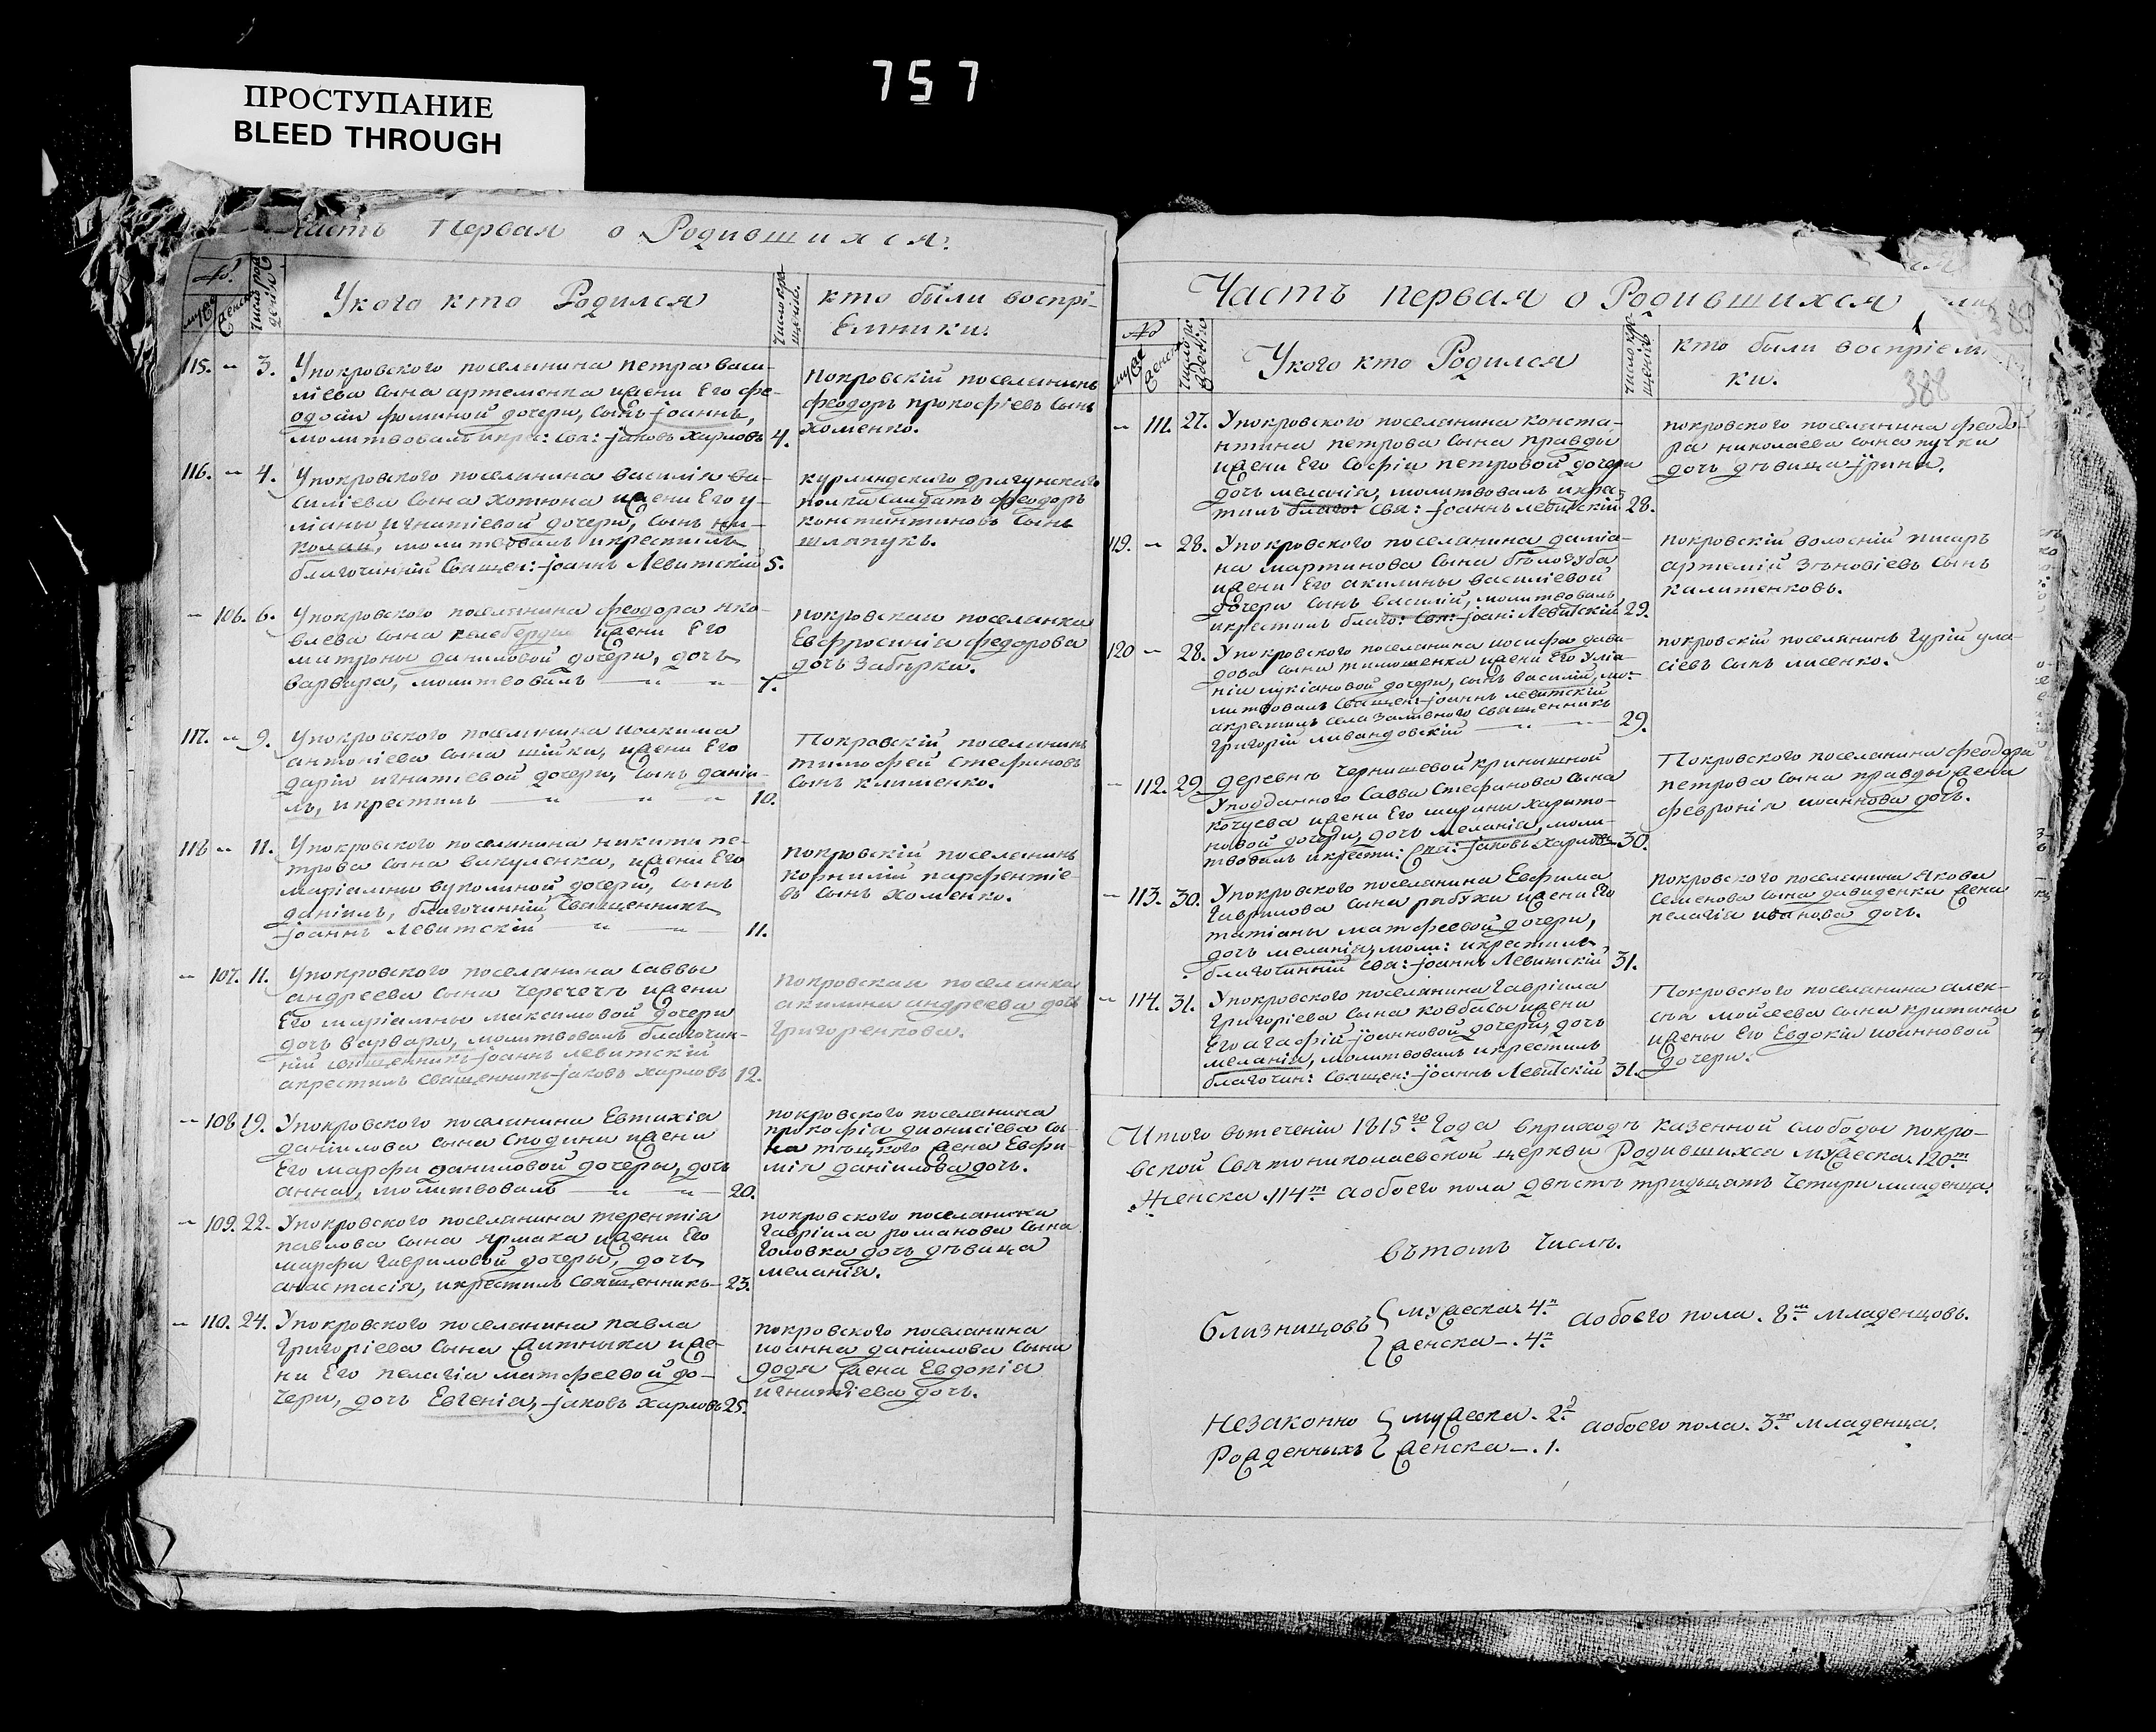 757
ПРОСТУПАНИЕ
BLEED THROUGH
Часть Первая о Родившихся.
№
муж
женск
число рож
денія
Укого кто Родился
число кре
щенія.
кто были воспрі-
емники.
115. — 3. Упокровского поселянина петра васи-
ліева сына артеменка ижени Его фе-
одосіи фоминой дочери, сынъ іоаннъ,
молитвовалъ икре: свя: іаковъ харловъ 4.
Покровскій поселянинъ
феодоръ прокофіевъ сынъ
хоменко.
116. — 4. Упокровского поселянина василія ва-
силіева сына хотюна ижени Его у-
ліаны игнатіевой дочери, сынъ ни-
колай, молитвовалъ икрестилъ
благочинній Священ: іоаннъ Левитскій 5.
курляндского драгунского
полка салдатъ феодоръ
константиновъ сынъ
шляпукъ.
— 106. 6. Упокровского поселянина феодора яко-
влева сына ижени Его
матроны даниловой дочери, дочь
варвара, молитвовалъ — „ — „ — 7.
покровская поселянка
Евфросинія федорова
дочь Забѣрка.
117. — 9. Упокровского поселянина иоакима
антоніева сына шійки, ижени Его
даріи игнатіевой дочери, сынъ даніи-
лъ, икрестилъ — „ — „ — „ — 10.
Покровскій поселянинъ
тимофей Стефановъ
сынъ клименко.
118 — 11. Упокровского поселянина никити пе-
трова сына вакуленка, ижени Его
маріамны вуколиной дочери, сынъ
даніилъ, благочинній Священникъ
іоаннъ Левитскій — „ — „ — 11.
покровскій поселянинъ
корнилій парфентіе-
въ сынъ хоменко.
— 107. 11. Упокровского поселянина Саввы
андреева сына черечетъ ижени
Его маріамны максимовой дочери
дочь варвара, молитвовалъ благочин-
ній священникъ іоаннъ левитскій
акрестилъ Священникъ іаковъ харловъ 12.
покровская поселянка
акилина андреева дочь
Григоренкова.
— 108 19. Упокровского поселянина Евтихія
даніилова сына Сподини ижени
Его марфи даниловой дочеры, дочь
анна, молитвовалъ — „ — „ — 20.
покровского поселянина
прокофія дионисіева сы-
на тѣцкого жена Евфи-
мія даніилова дочь.
— 109. 22. Упокровского поселянина терентія
павлова сына ярмака ижени Его
марфи Гавриловой дочеры, дочь
анастасія, икрестилъ Священникъ — 23.
покровского поселянина
Гавріила романова сына
Головка дочь дѣвица
меланія.
— 110. 24. Упокровского поселянина павла
Григоріева сына житныка иже-
ни Его пелагіи матфеевой до-
чери, дочь Евгенія, іаковъ харловъ 25.
покровского поселянина
иоанна даніилова сына
додя жена Евдокія
игнатіева дочь.
Часть первая о Родившихся
389
№
муж
женск
число ро
ждені
Укого кто Родился
число кре
щенія
кто были воспріемни
ки.
388
— 111. 27. Упокровского поселянина конста-
нтина петрова сына правды
ижени Его Софіи петровой дочери
дочь меланія, молитвовалъ икрес
тилъ благо: свя: іоаннъ левитскій 28.
покровского поселянина феодо-
ра николаева сына пучки
дочь дѣвица ірина.
119. — 28. Упокровского поселянина даміа-
на мартинова сына бѣлогуба
ижени Его акилины василіевой
дочери сынъ василій, молитвовалъ
икрестилъ благо: Свя: іоан: Левитскій 29.
покровскій волосній писаръ
артемій Зѣновіевъ сынъ
калитенковъ.
120 — 28. Упокровского поселянина иосифа дави-
дова сына тимошенка ижени Его Уліа-
ніи лукіановой дочери, сынъ василій, мо-
литвовалъ Священ: іоаннъ левитскій
акрестилъ села Заливного священникъ
Григорій ливандовскій — „ — 29.
покровскій поселянинъ Гурій ула-
сіевъ сынъ лисенко.
— 112. 29. деревню Чернишевой криничной
Уподданного Савви Стефанова Сына
кочуева ижени Его марины харито-
новой дочери, дочь меланія, моли-
твовалъ икрести: Свя: іаковъ харловъ 30.
Покровского поселянина феодора
петрова сына правды жена
феврониія иоаннова дочь.
— 113. 30. Упокровского поселянина Евфима
Гаврилова сына рябухи ижени Его
татіаны матфеевой дочери,
дочь меланія, моли: икрестилъ
благочинній свя: іоаннъ Левитскій 31.
покровского поселянина Якова
Семенова сына давиденка жена
пелагія иванова дочь.
— 114. 31. Упокровского поселянина гавріила
Григоріева сына ковбасы ижени
Его агафіи іоанновой дочери, дочь
меланія, молитвовалъ икрестилъ
благочин: Священ: іоаннъ Левитскій 31.
Покровского поселянина алек-
сѣя мойсеева сына критины
ижены Его Евдокіа иоанновой
дочери.
Итого втеченіи 1815го Года вприходѣ казенной слободы покро-
вской Святониколаевской церкви Родившихся мужеска. 120т
Женска. 114т аобоего пола двѣстѣ тридцать четири младенца.
Вътомъ Числѣ.
Близницовъ { мужеска. 4п
{ женска — . 4п
аобоего пола. 8м младенцовъ.
Незаконно { мужеска. 2д
Рожденныхъ { женска — . 1.
аобоего пола. 3м младенца.